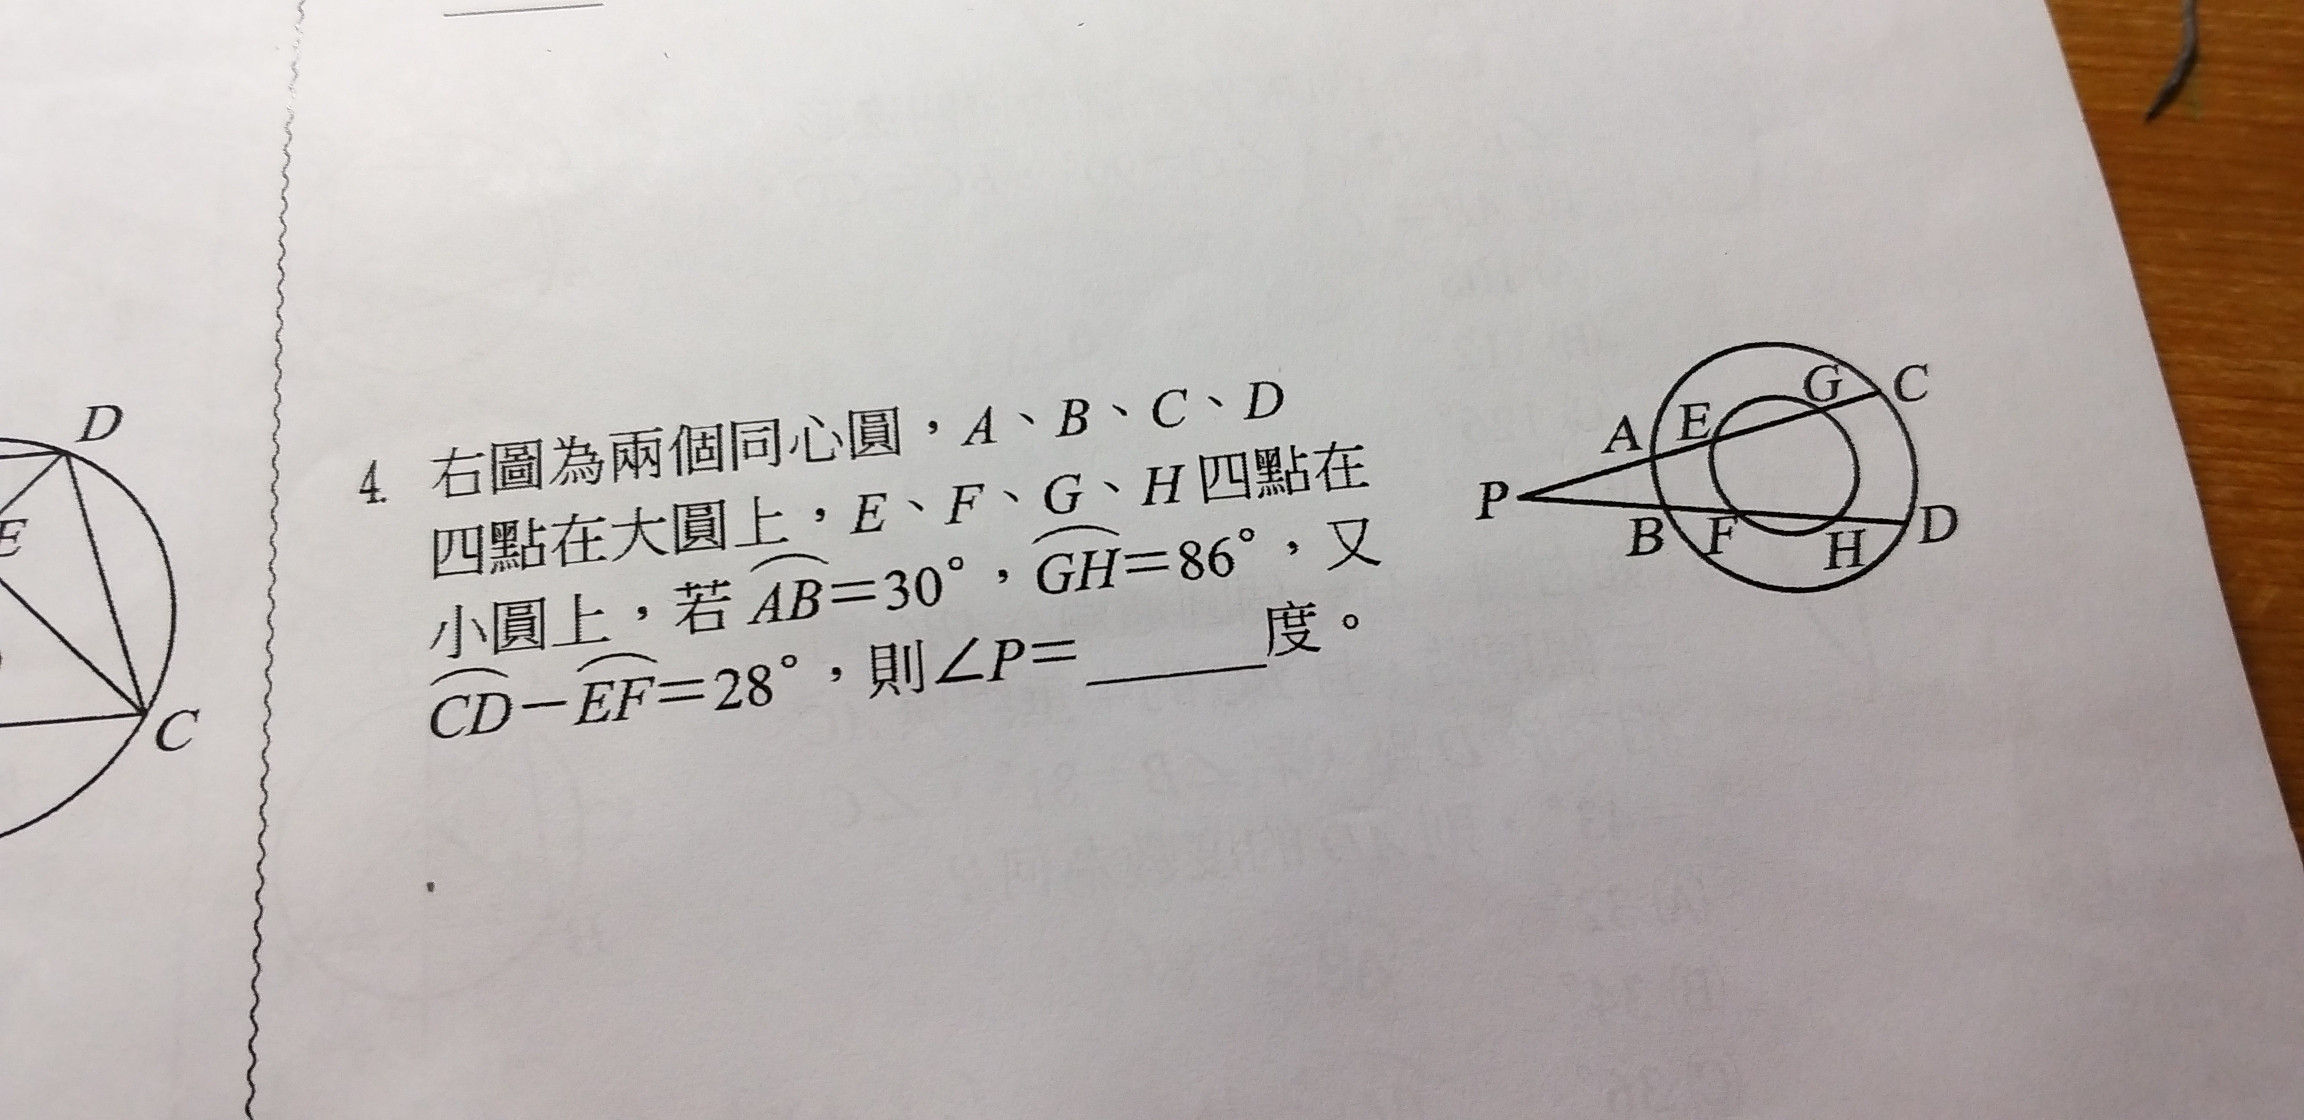 D
E
C
4. 右圖為兩個同心圓，A、B、C、D
四點在大圓上，E、F、G、H四點在
小圓上，若 AB=30°，GH=86°，又
CD－EF=28°，則∠P=______度。
G C
A E
P
B F H D